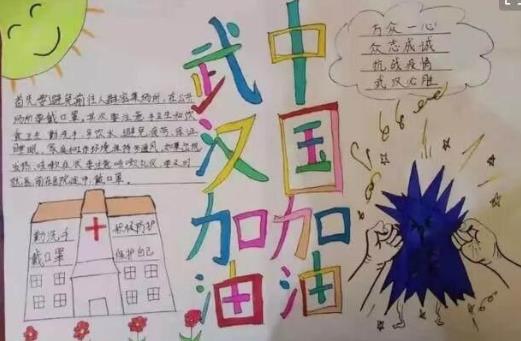 武汉加油
中国加油
万众一心
众志成诚
抗战疫情
武汉必胜
首先要避免前往人群密集场所,在公共
场所要戴口罩,其次要注意手卫生和饮
食卫生,勤洗手,多饮水,避免疲劳,保证
睡眠,家庭和工作环境保持通风,如果出现
发热,咳嗽症状要注意咳嗽礼仪,要及时
就医,前往医院途中,戴口罩。
勤洗手
戴口罩
积极防护
保护自己